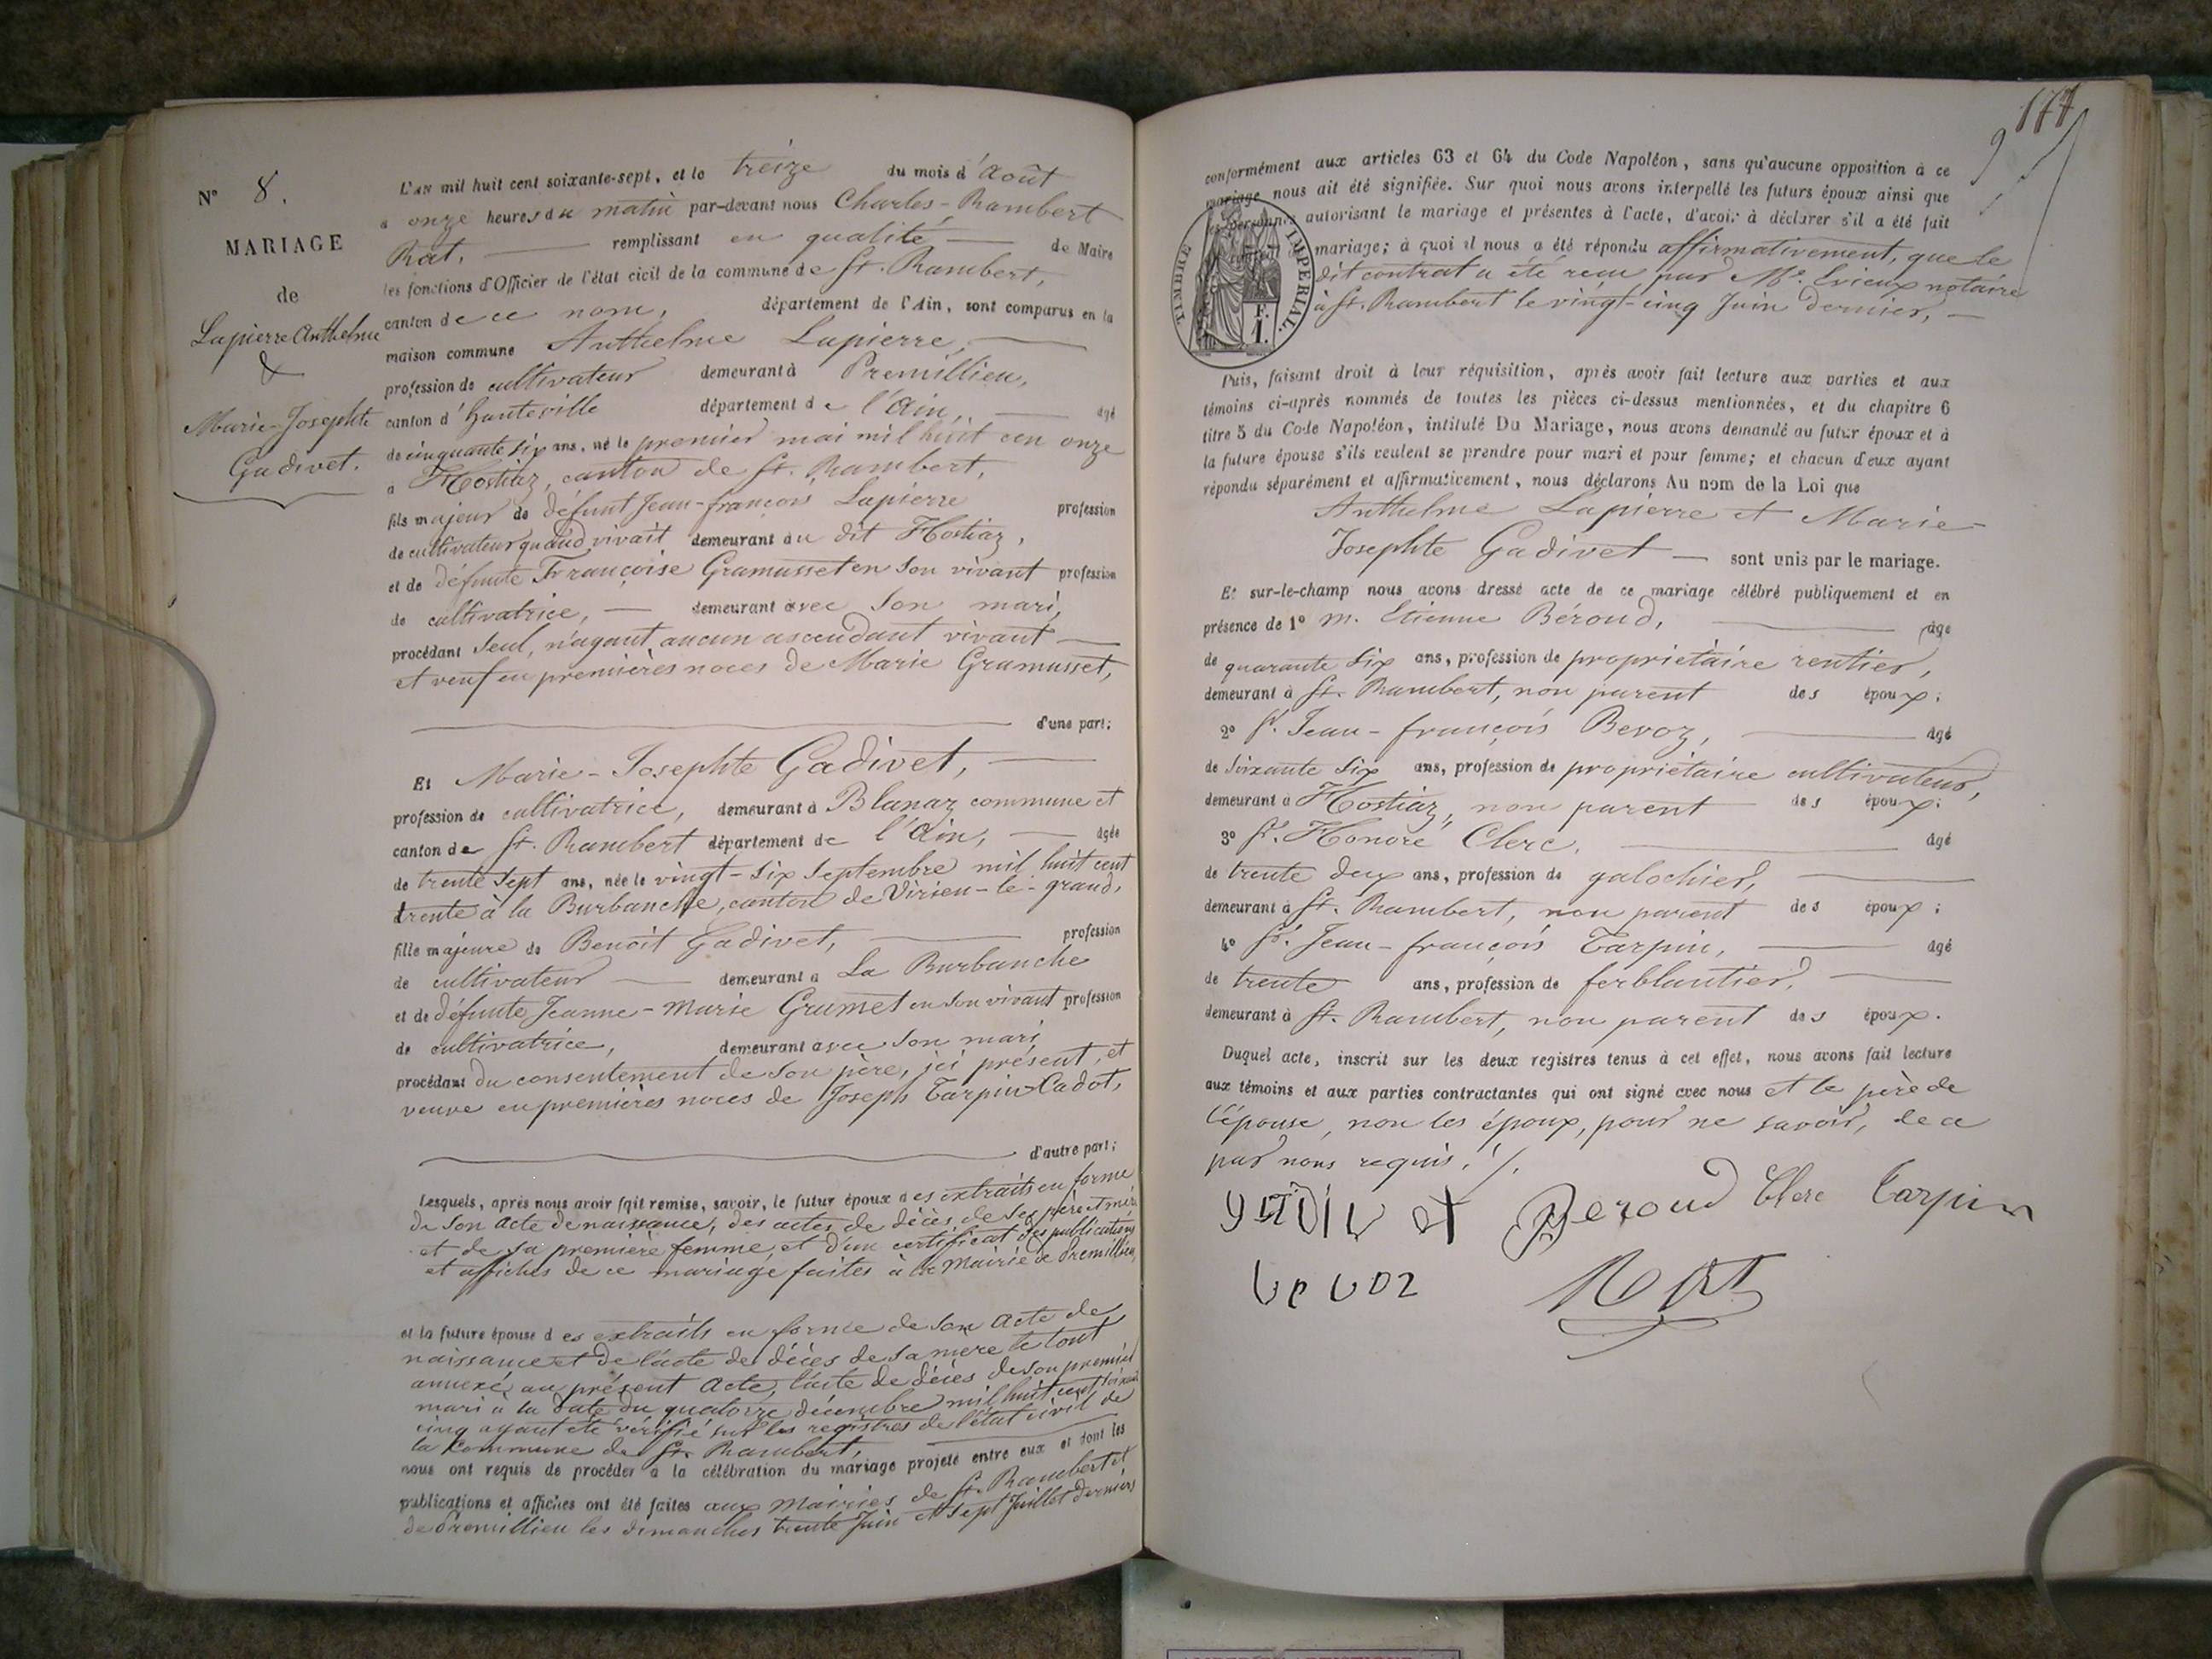 N° 8.
MARIAGE
de
Lapierre Anthelme
&
Marie-Josephte
Gadivet.
L'AN mil huit cent soixante-sept, et le treize du mois d'Août
à onze heures du matin par-devant nous Charles-Rambert
Rat, remplissant en qualité de Maire
les fonctions d'Officier de l'état civil de la commune de St. Rambert,
canton de ce nom, département de l'Ain, sont comparus en la
maison commune Anthelme Lapierre,
profession de cultivateur demeurant à Premillieu,
canton d'hauteville département de l'Ain, âgé
de cinquante six ans, né le premier mai mil huit cen onze
à Hostiaz, canton de St. Rambert,
fils majeur de défunt Jean-françois Lapierre profession
de cultivateur quand vivait demeurant au dit Hostiaz,
et de défunte Françoise Gramusset en son vivant profession
de cultivatrice, demeurant avec son mari,
procédant seul, n'ayant aucun ascendant vivant
et veuf en premières noces de Marie Gramusset,
d'une part;
Et Marie-Josephte Gadivet,
profession de cultivatrice, demeurant à Blanaz commune et
canton de St. Rambert département de l'Ain, âgée
de trente sept ans, née le vingt-six Septembre mil huit cent
trente à la Burbanche, canton de Virieu-le-grand,
fille majeure de Benoit Gadivet, profession
de cultivateur demeurant à La Burbanche
et de défunte Jeanne-Marie Grumet en son vivant profession
de cultivatrice, demeurant avec son mari
procédant du consentement de son père, ici présent, et
veuve en premières noces de Joseph Tarpin-Cadot,
d'autre part;
Lesquels, après nous avoir fait remise, savoir, le futur époux des extraits en forme
de son acte de naissance, des actes de décès de ses père et mère
et de sa première femme, et d'un certificat des publications
et affiches de ce mariage faites à la mairie de Premillieu,
et la future épouse des extraits en forme de son acte de
naissance et de l'acte de décès de sa mere le tout
annexé au présent acte, l'acte de décès de son premier
mari à la date du quatorze décembre mil huit cent soixante
cinq ayant été vérifié sur les registres de l'état civil de
la Commune de St. Rambert,
nous ont requis de procéder à la célébration du mariage projeté entre eux et dont les
publications et affiches ont été faites aux mairies de St. Rambert et
de Premillieu les dimanches trente Juin et sept Juillet derniers
177
conformément aux articles 63 et 64 du Code Napoléon, sans qu'aucune opposition à ce
mariage nous ait été signifiée. Sur quoi nous avons interpellé les futurs époux ainsi que
les personnes autorisant le mariage et présentes à l'acte, d'avoir à déclarer s'il a été fait
mariage; à quoi il nous a été répondu affirmativement, que le
dit contrat a été reçu par Me. Evieux notaire
à St. Rambert le vingt-cinq Juin dernier,
TIMBRE IMPERIAL.
F.
1.
Puis, faisant droit à leur réquisition, après avoir fait lecture aux parties et aux
témoins ci-après nommés de toutes les pièces ci-dessus mentionnées, et du chapitre 6
titre 5 du Code Napoléon, intitulé Du Mariage, nous avons demandé au futur époux et à
la future épouse s'ils veulent se prendre pour mari et pour femme; et chacun d'eux ayant
répondu séparément et affirmativement, nous déclarons Au nom de la Loi que
Anthelme Lapierre et Marie-
Josephte Gadivet sont unis par le mariage.
Et sur-le-champ nous avons dressé acte de ce mariage célébré publiquement et en
présence de 1° m. Etienne Béroud, âgé
de quarante six ans, profession de propriétaire rentier,
demeurant à St. Rambert, non parent des époux;
2° Sr. Jean-françois Bevoz, âgé
de soixante six ans, profession de propriétaire cultivateur,
demeurant à Hostiaz, non parent des époux;
3° Sr. Honoré Clerc, âgé
de trente deux ans, profession de galochier,
demeurant à St. Rambert, non parent des époux;
4° Sr. Jean-françois Tarpin, âgé
de trente ans, profession de ferblantier,
demeurant à St. Rambert, non parent des époux.
Duquel acte, inscrit sur les deux registres tenus à cet effet, nous avons fait lecture
aux témoins et aux parties contractantes qui ont signé avec nous et le père de
l'épouse, non les époux, pour ne savoir, de ce
par nous requis. /.
gadivet Béroud Clerc Tarpin
bevoz Rat